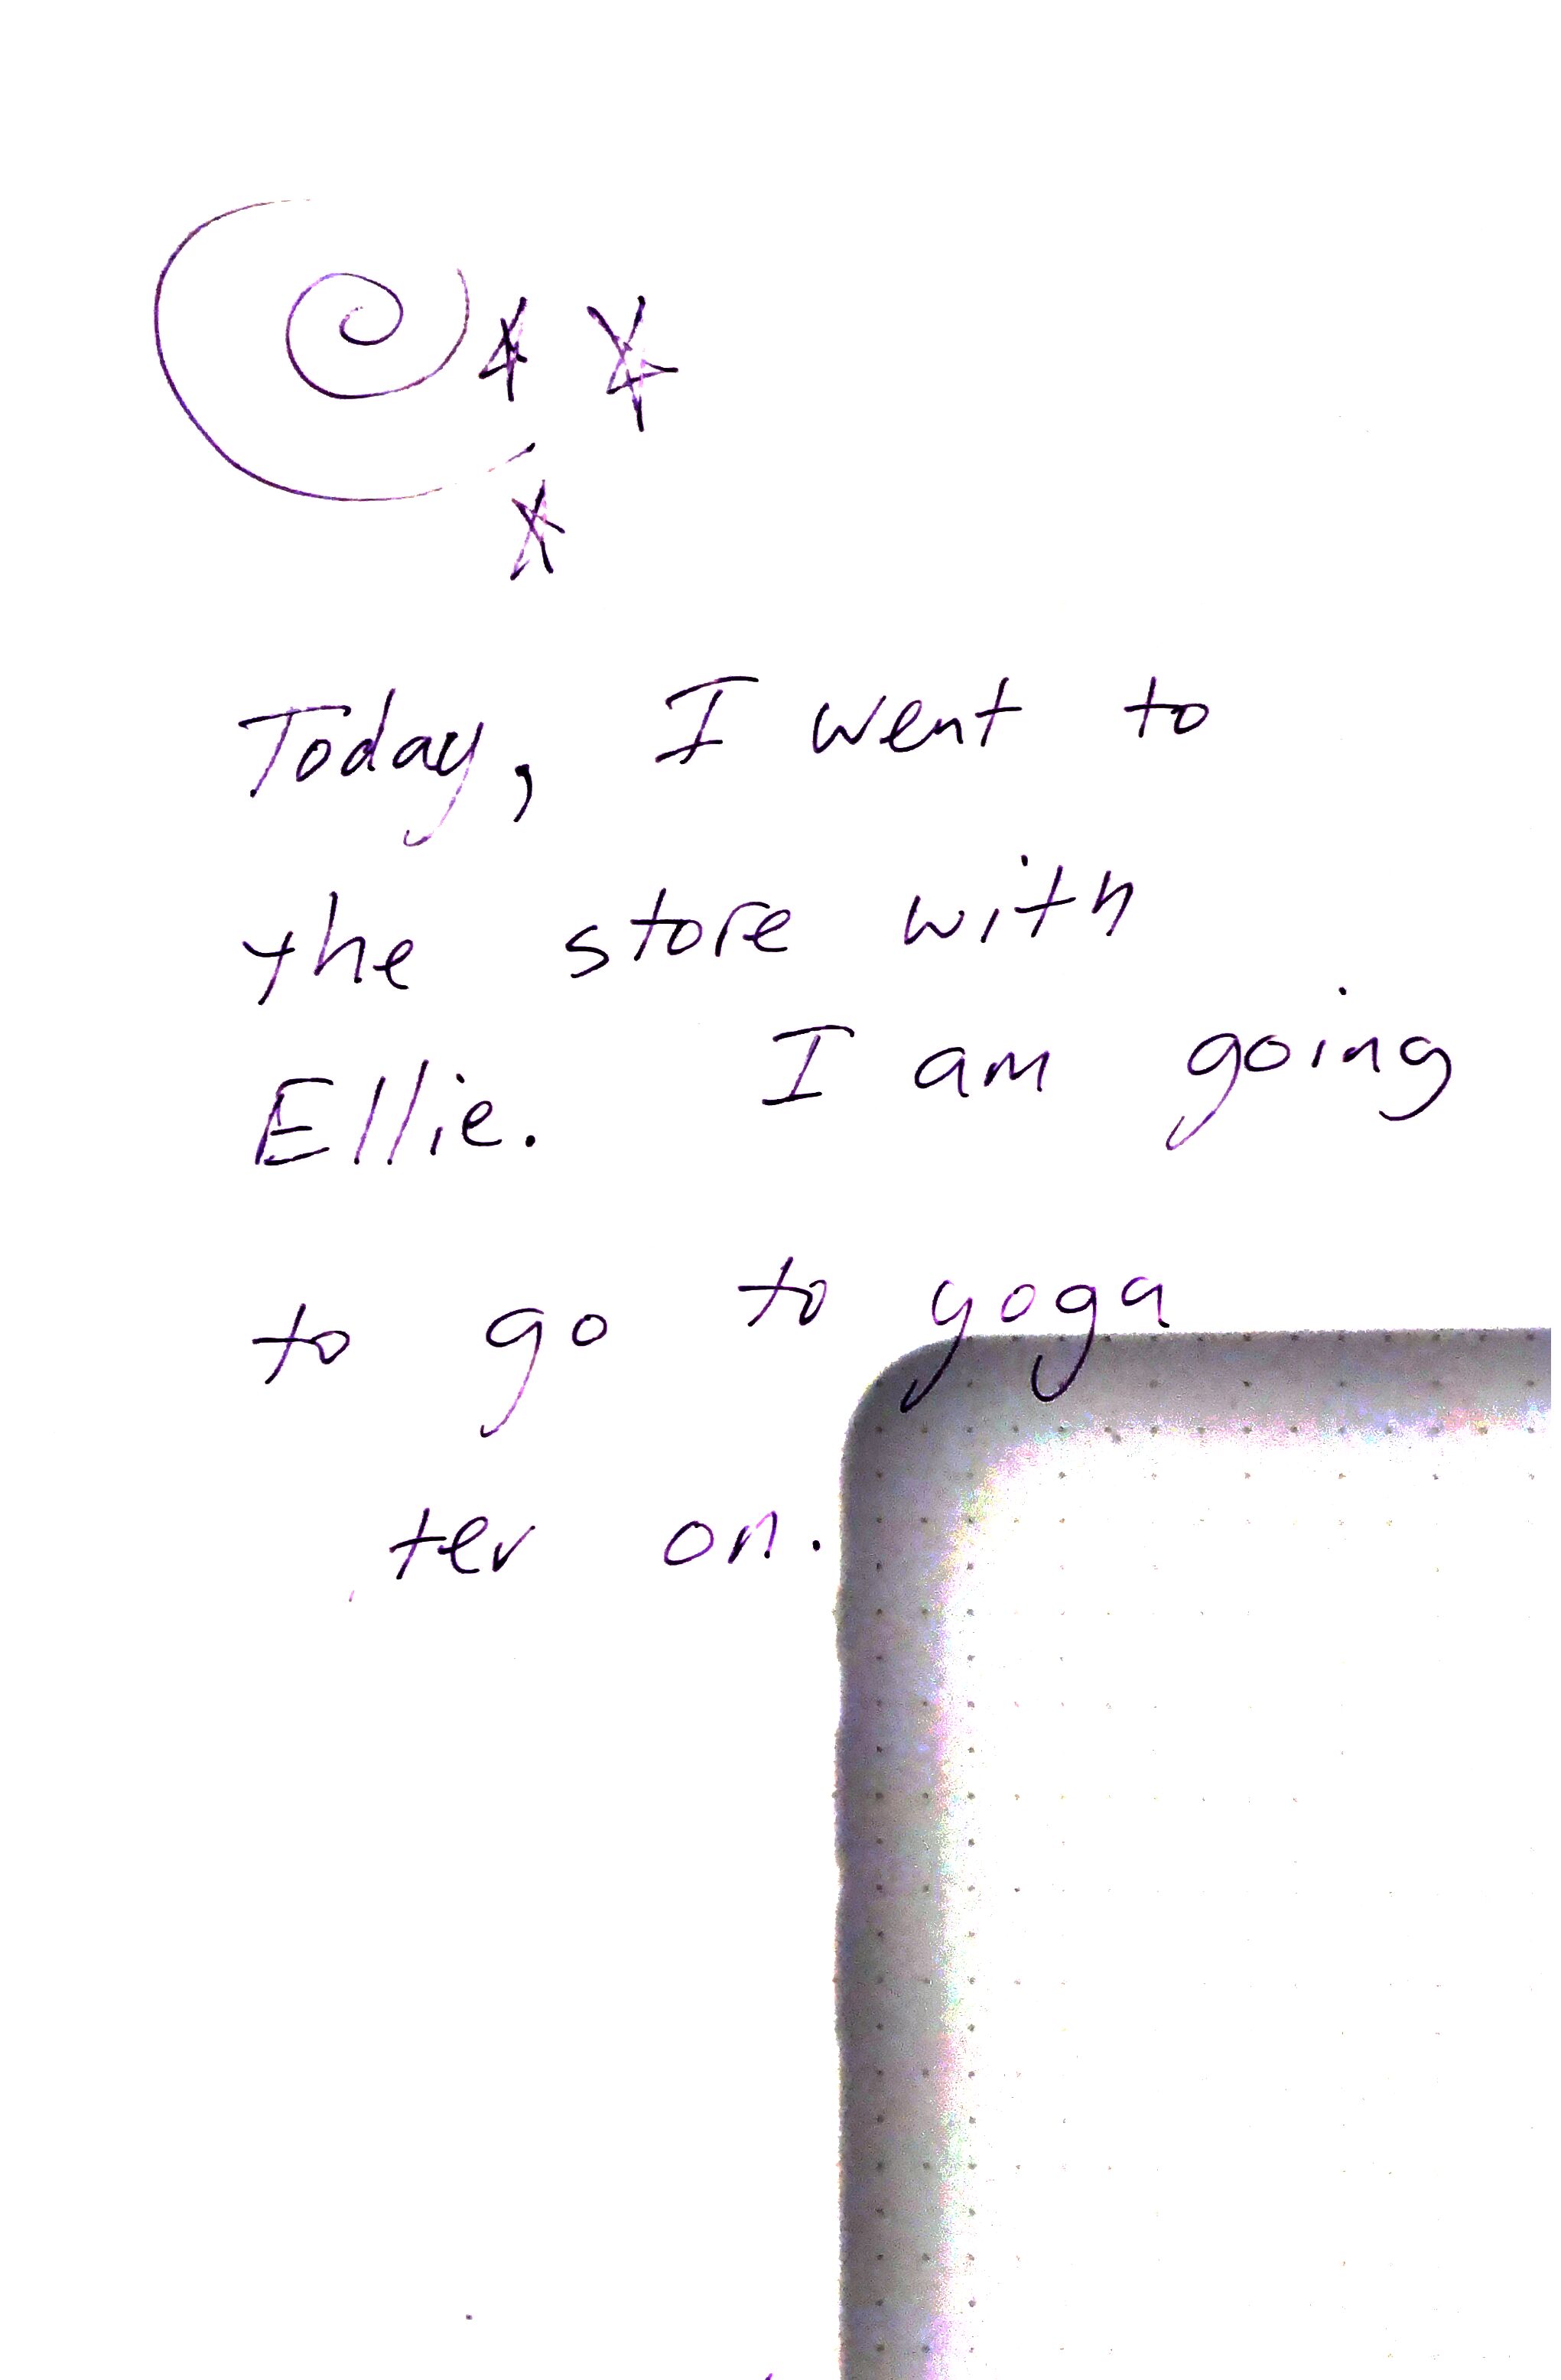 Today, I went to
the store with
Ellie. I am going
to go to yoga
ter on.